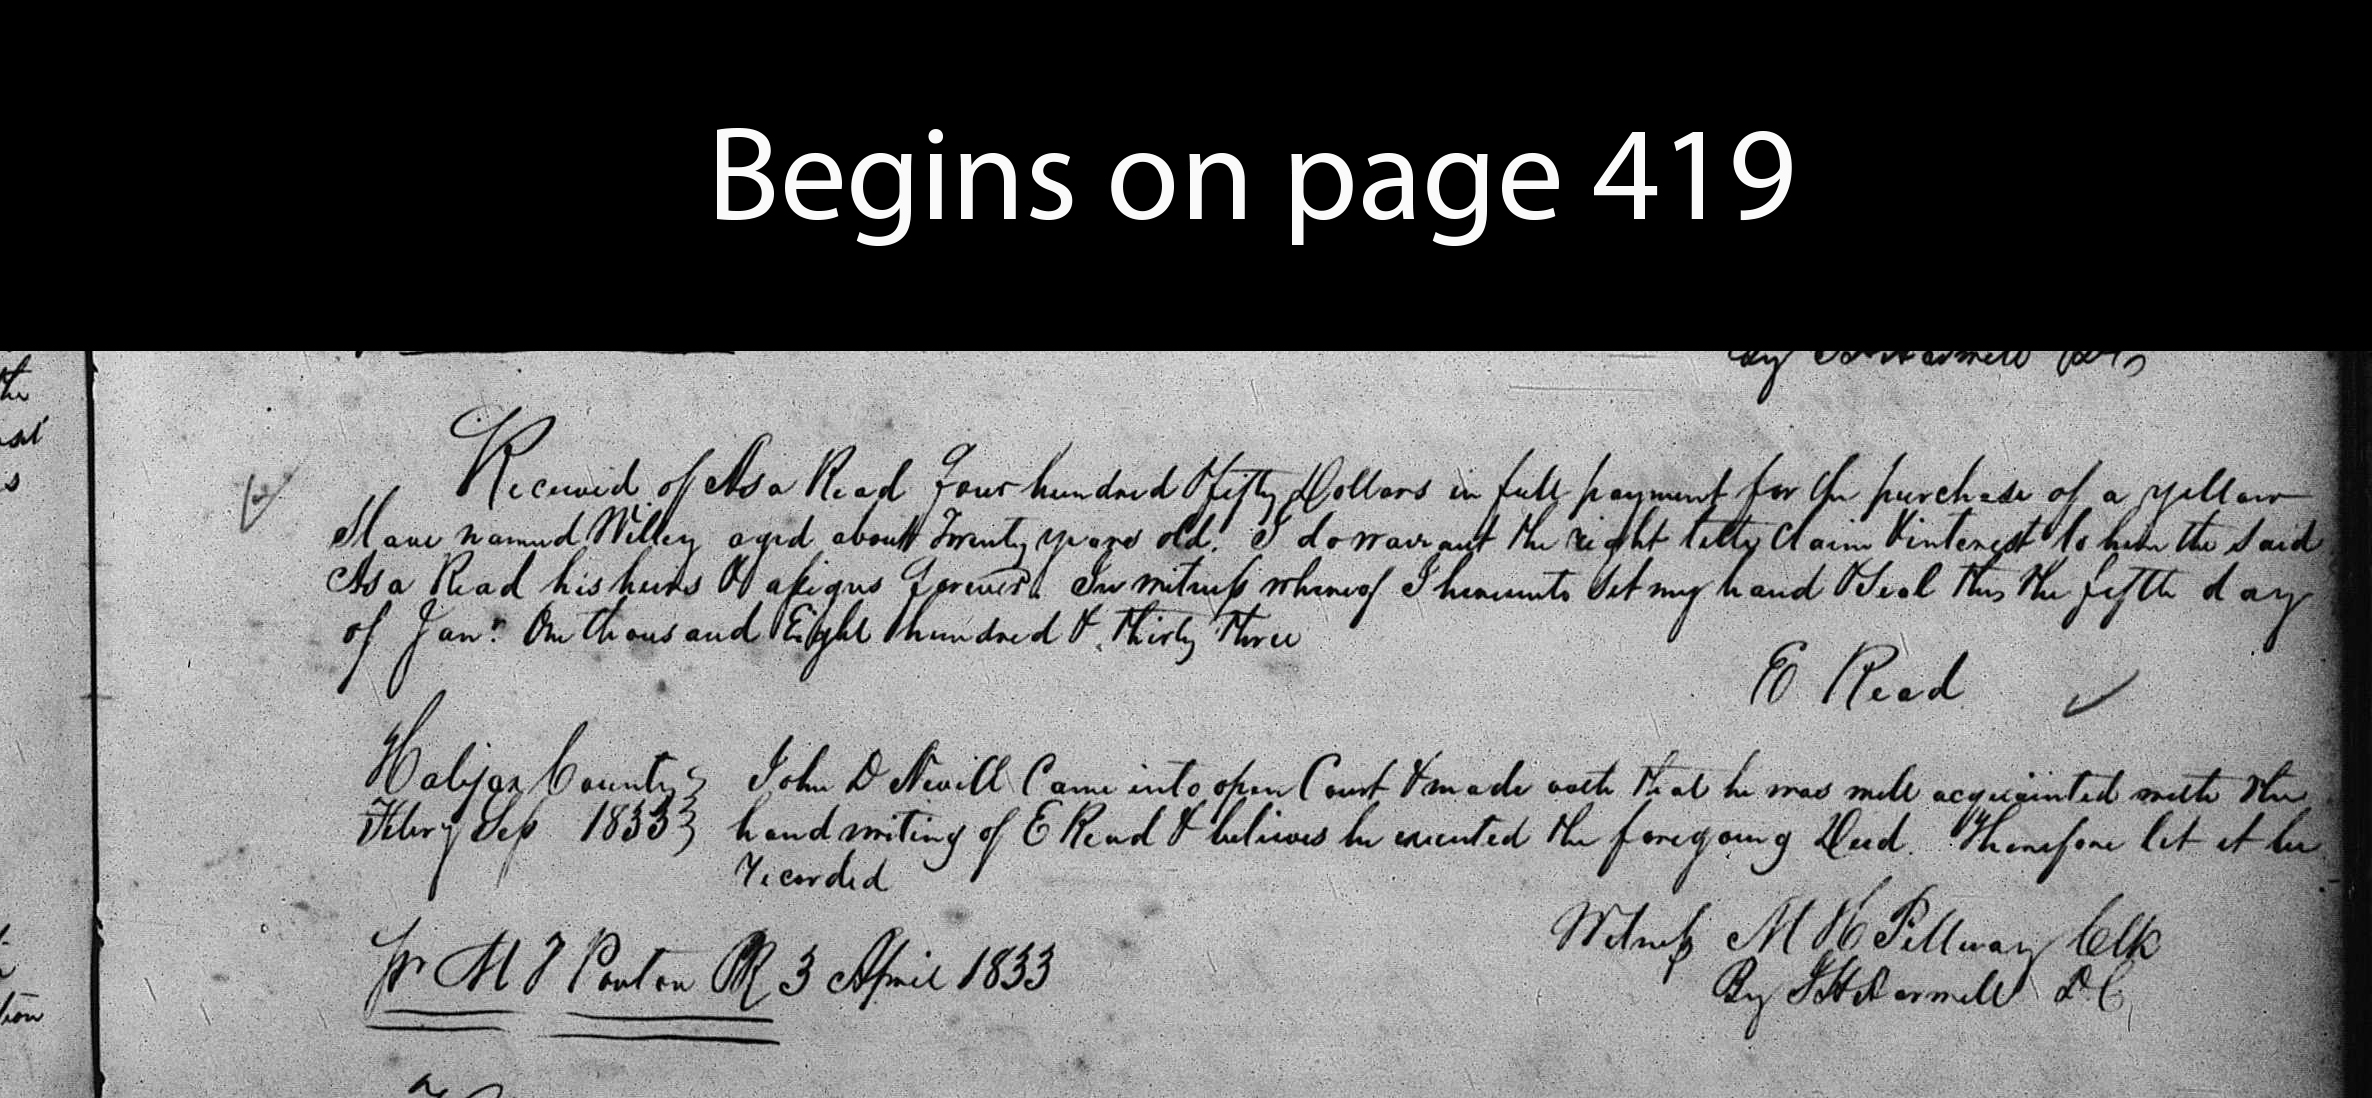 Begins on page 419
By
Received of Asa Read four hundred & fifty Dollars in full payment for the purchase of a yellow
Slave named Willey aged about Twenty years old. I do warrant the right title Claim & interest to him the said
Asa Read his heirs & assigns forever. In witness whereof I hereunto Set my hand & Seal this the fifth day
of Janr. One thousand Eight hundred & thirty three
E Read
Halifax County John D Nevill Came into open Court & made oath that he was well acquainted with the
Feby Sep 1833 hand writing of E Read & believes he executed the foregoing Deed. Therefore let it be
recorded
Witness M H Pettway Clk
pr M F Ponton PR 3 April 1833
By D.C.
the
tion